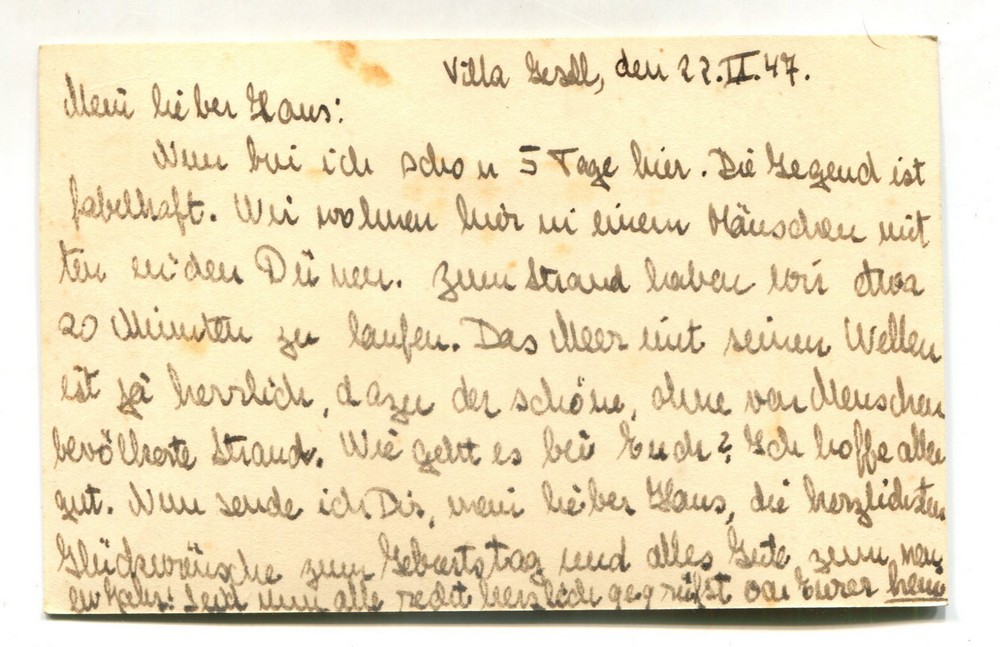 Villa Gesell, den 22.II.47.
Mein lieber Hans:
Nun bin ich schon 5 Tage hier. Die Gegend ist
fabelhaft. Wir wohnen hier in einem Häuschen mit
ten in den Dünen. Zum Strand haben wir etwa
20 Minuten zu laufen. Das Meer mit seinen Wellen
ist ja herrlich, dazu der schöne, ohne von Menschen
bevölkerte Strand. Wie geht es bei Euch? Ich hoffe allen
gut. Nun sende ich Dir, mein lieber Hans, die herzlichsten
Glückwünsche zum Geburtstag und alles Gute zum neu
en Jahr! Seid nun alle recht herzlich gegrüßt von Eurer